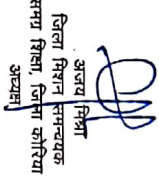 अजय मिश्रा
जिला मिशन समन्वयक
समग्र शिक्षा, जिला कोरिया